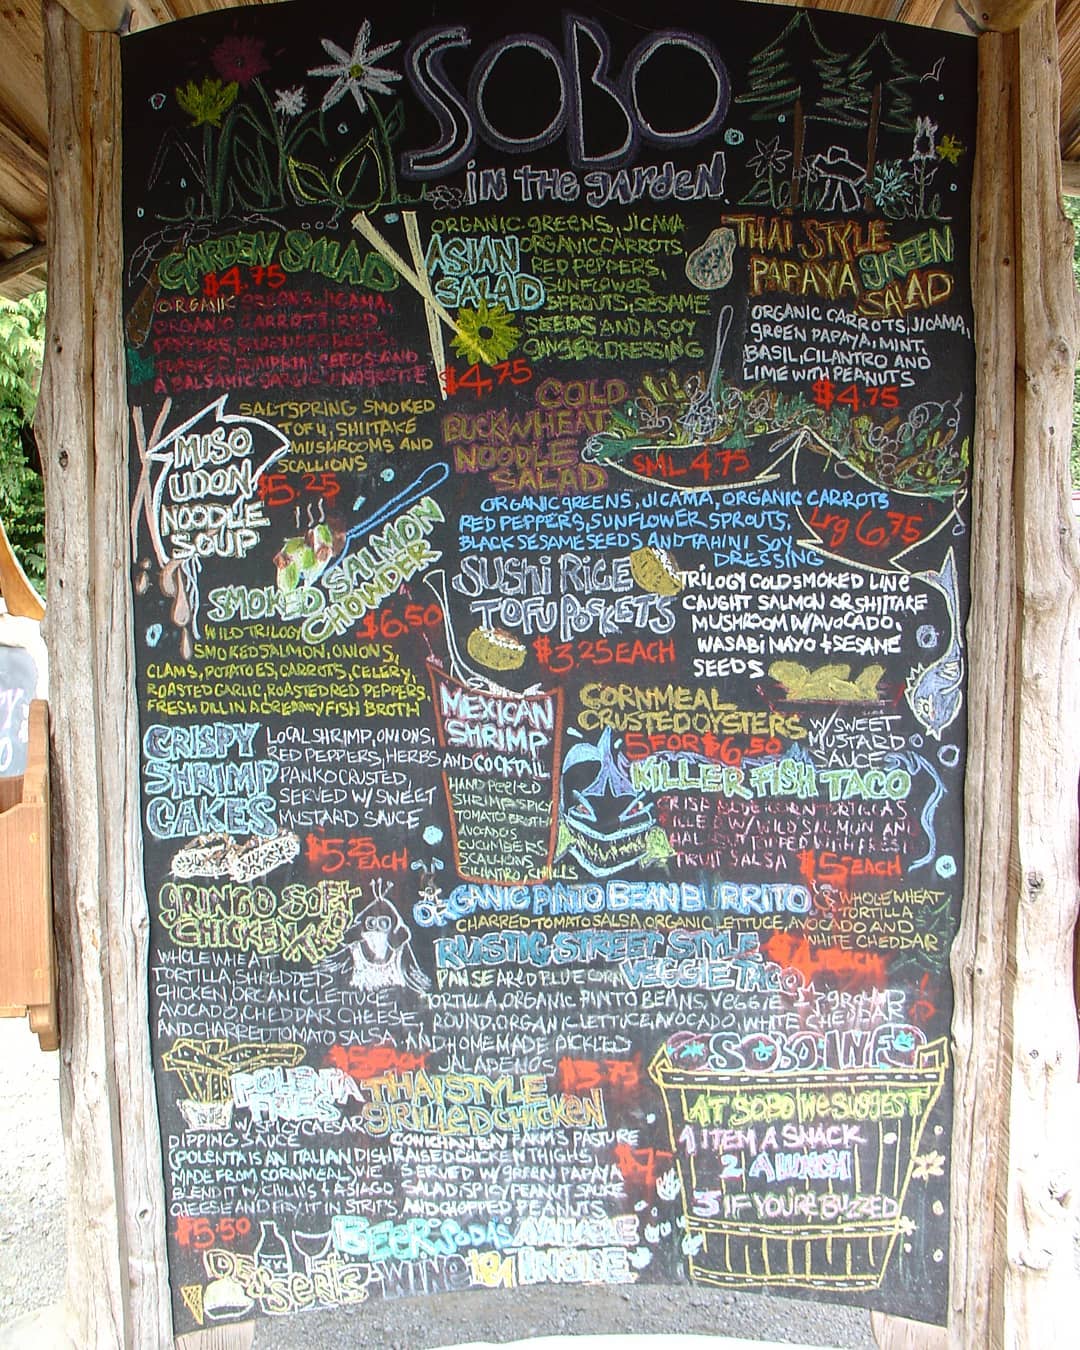 SOBO
in the garden
GARDEN SALAD
$4.75
ORGANIC GREENS, JICAMA,
ORGANIC CARROTS, RED
PEPPERS, SHREDDED BEETS,
TOASTED PUMPKIN SEEDS AND
A BALSAMIC GARLIC
ASIAN
SALAD
ORGANIC GREENS, JICAMA
ORGANIC CARROTS,
RED PEPPERS,
SUNFLOWER
SPROUTS, SESAME
SEEDS AND A SOY
GINGER DRESSING
$4.75
THAI STYLE
GREEN
PAPAYA
SALAD
ORGANIC CARROTS, JICAMA,
GREEN PAPAYA, MINT,
BASIL, CILANTRO AND
LIME WITH PEANUTS
$4.75
MISO
UDON
NOODLE
SOUP
SALTSPRING SMOKED
TOFU, SHIITAKE
MUSHROOMS AND
SCALLIONS
$5.25
COLD
BUCKWHEAT
NOODLE
SALAD
SML 4.75
Lrg 6.75
ORGANIC GREENS, JICAMA, ORGANIC CARROTS
RED PEPPERS, SUNFLOWER SPROUTS,
BLACK SESAME SEEDS AND TAHINI SOY
DRESSING
SMOKED SALMON
CHOWDER
$6.50
WILD TRILOGY
SMOKED SALMON, ONIONS,
CLAMS, POTATOES, CARROTS, CELERY,
ROASTED GARLIC, ROASTED RED PEPPERS,
FRESH DILL IN A CREAMY FISH BROTH
SUSHI RICE
TOFU POCKETS
$3.25 EACH
TRILOGY COLD SMOKED LINE
CAUGHT SALMON OR SHIITAKE
MUSHROOM W/AVOCADO,
WASABI MAYO + SESAME
SEEDS
CRISPY
SHRIMP
CAKES
LOCAL SHRIMP, ONIONS,
RED PEPPERS, HERBS AND
PANKO CRUSTED,
SERVED W/ SWEET
MUSTARD SAUCE
$5.25
EACH
MEXICAN
SHRIMP
COCKTAIL
HAND PEELED
SHRIMP SPICY
TOMATO BROTH
AVOCADOS
CUCUMBERS,
SCALLIONS,
CILANTRO, CHILLS
CORNMEAL
CRUSTED OYSTERS
5 FOR $6.50
W/SWEET
MUSTARD
SAUCE
KILLER FISH TACO
CRISP BLUE CORN TORTILLAS
FILLED W/ WILD SALMON AND
HALIBUT TOPPED WITH FRESH
FRUIT SALSA
$5 EACH
GRINGO SOFT
CHICKEN TACO
WHOLE WHEAT
TORTILLA, SHREDDED
CHICKEN, ORGANIC LETTUCE,
AVOCADO, CHEDDAR CHEESE,
AND CHARRED TOMATO SALSA
$5 EACH
ORGANIC PINTO BEAN BURRITO
WHOLE WHEAT
TORTILLA
CHARRED TOMATO SALSA, ORGANIC LETTUCE, AVOCADO AND
WHITE CHEDDAR
RUSTIC STREET STYLE
VEGGIE TACO
PAN SEARED BLUE CORN
TORTILLA, ORGANIC PINTO BEANS, VEGGIE
ROUND, ORGANIC LETTUCE, AVOCADO, WHITE CHEDDAR
AND HOMEMADE PICKLED
JALAPENOS
$3.75
POLENTA
FRIES
W/SPICY CAESAR
DIPPING SAUCE
(POLENTA IS AN ITALIAN DISH
MADE FROM CORNMEAL, WE
BLEND IT W/ CHILI'S + ASIAGO
CHEESE AND FRY IT IN STRIPS)
$5.50
THAI STYLE
GRILLED CHICKEN
COWICHAN BAY FARMS PASTURE
RAISED CHICKEN THIGHS
SERVED W/ GREEN PAPAYA
SALAD, SPICY PEANUT SAUCE
AND CHOPPED PEANUTS
$7
AT SOBO WE SUGGEST
1 ITEM A SNACK
2 A LUNCH
3 IF YOU'RE BUZZED
DESSERTS
BEER SODAS
WINE
AVAILABLE
INSIDE